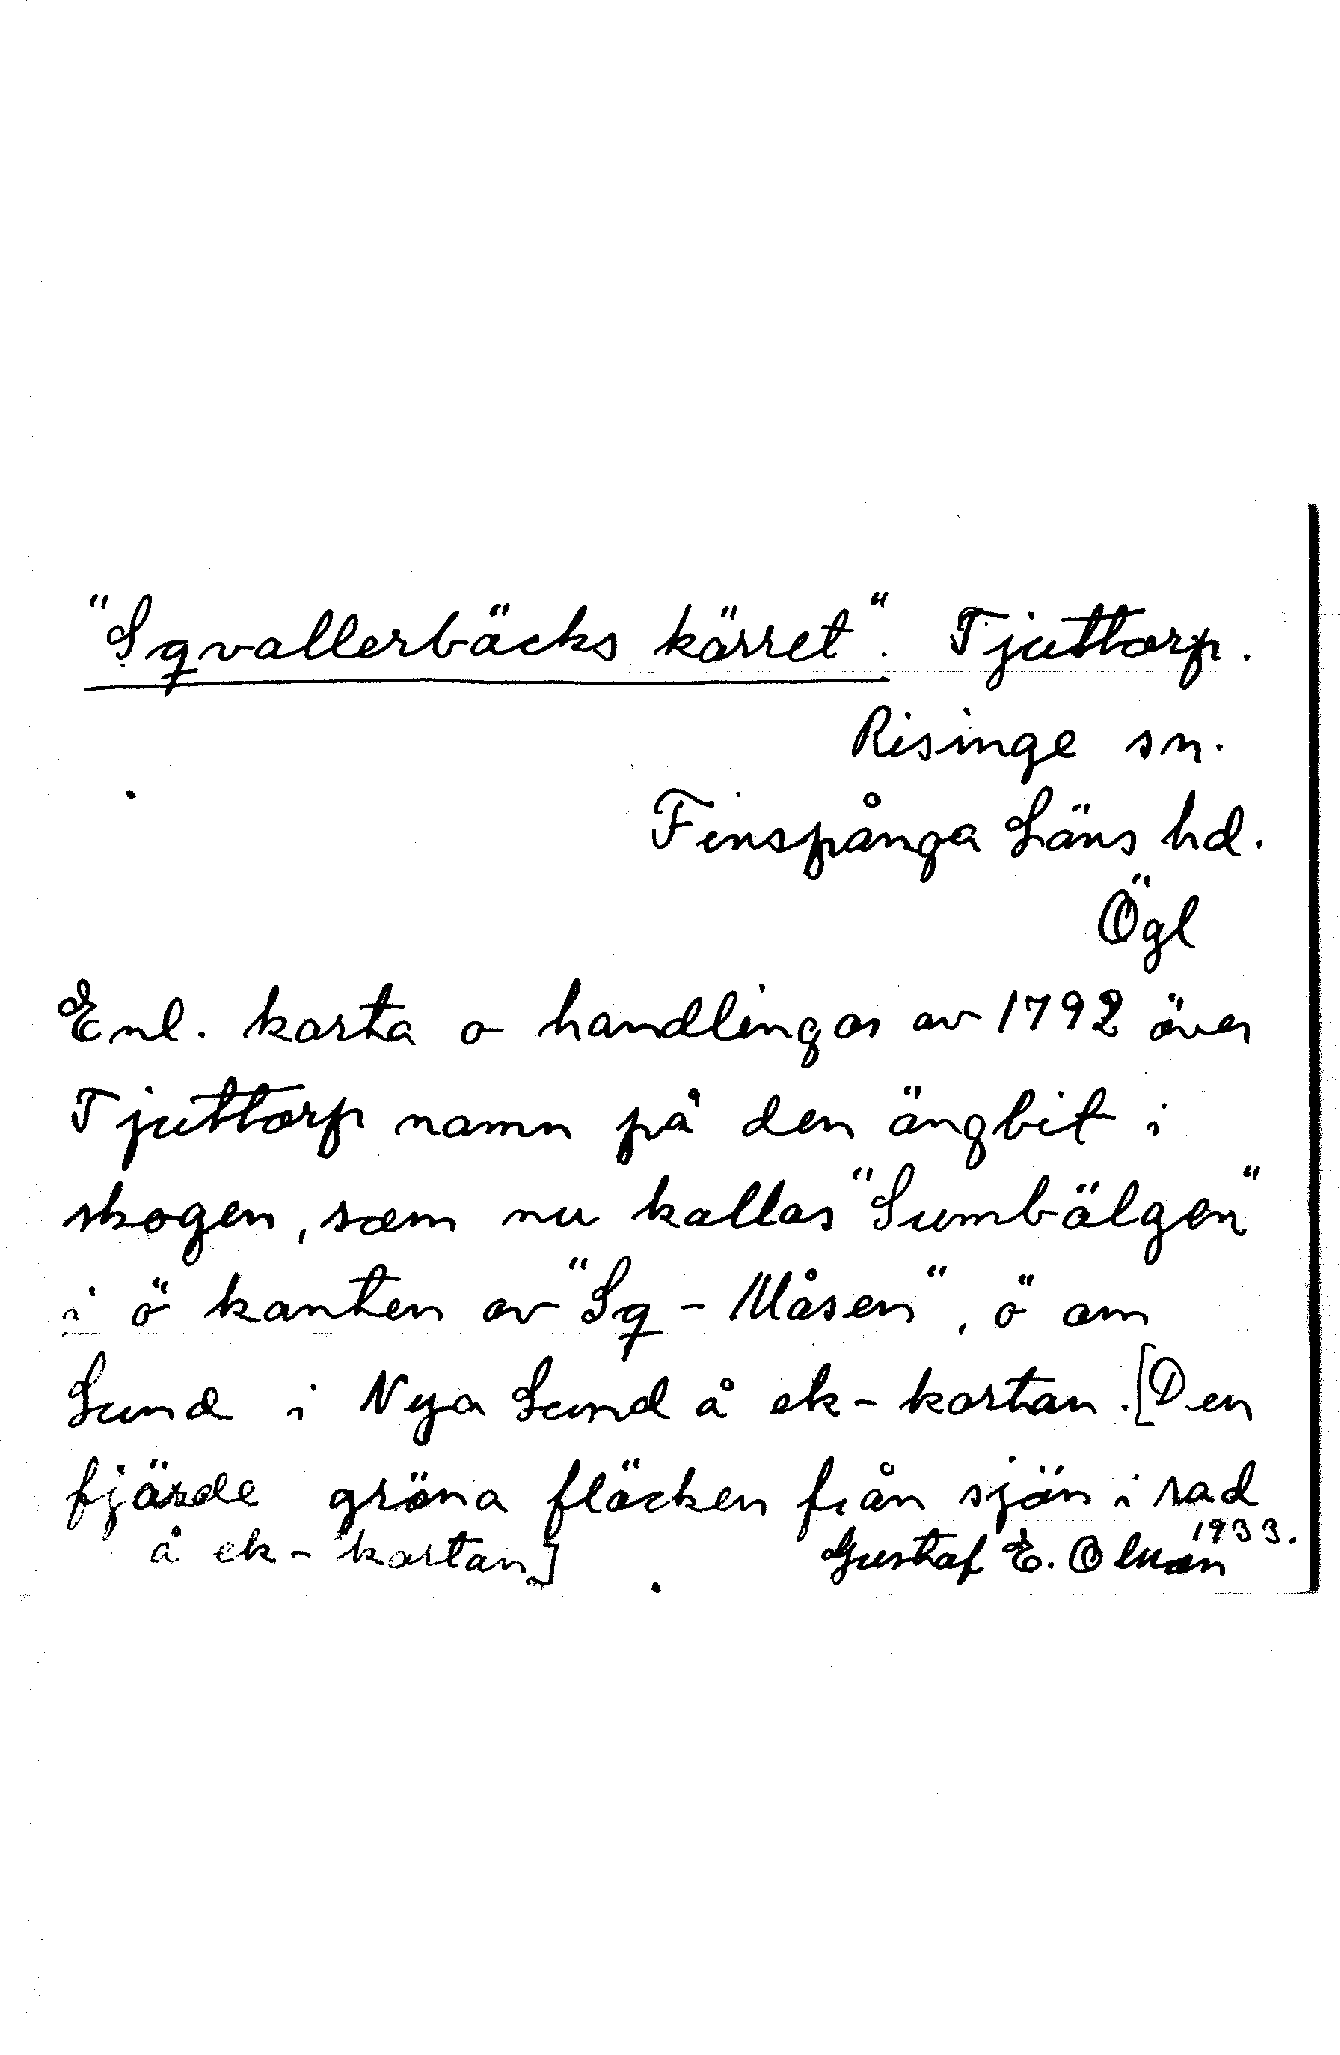 "Sqvallerbäcks kärret". Tjuttorp.
Risinge sn.
Finspånga Läns hd.
Ögl
Enl. karta o handlingar av 1792 över
Tjuttorp namn på den ängbit i
skogen, som nu kallas "Sumbälgen"
i ö kanten av "Sq-Måsen", ö om
Sund i Nya Sund å ek-kartan. [Den
fjärde gröna fläcken från sjön i rad
å ek-kartan]
1933.
Gustaf E.